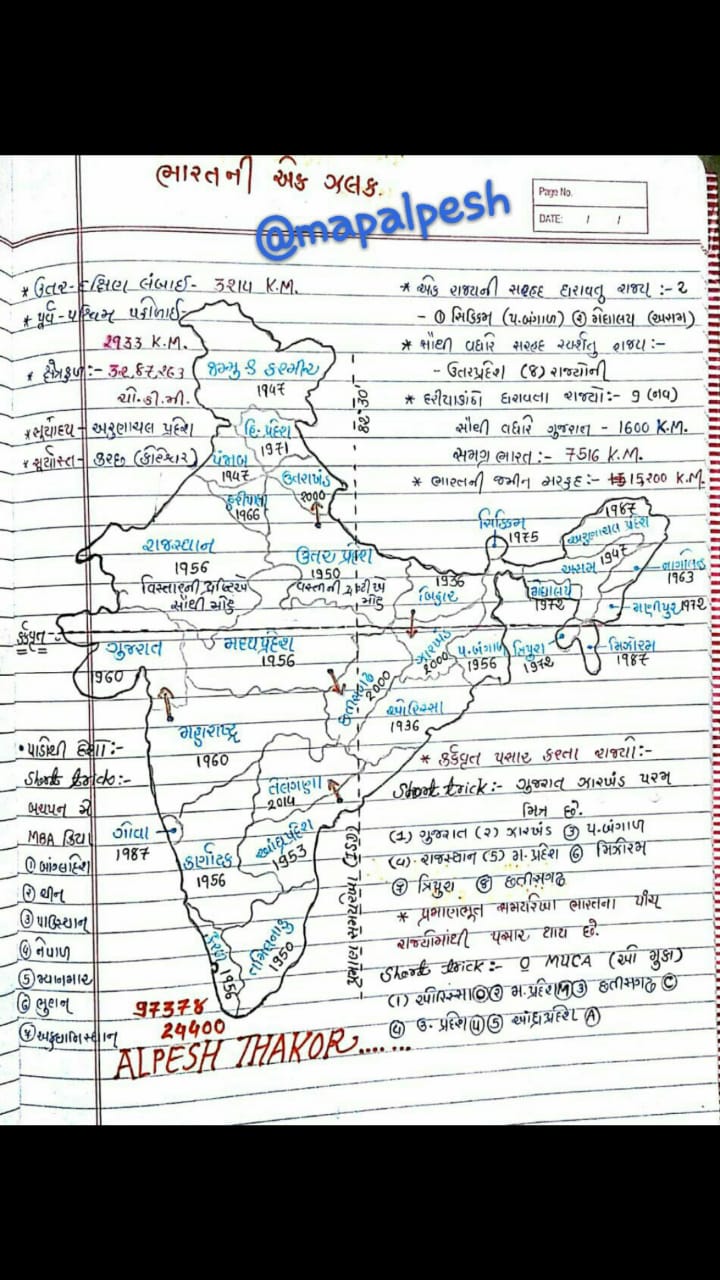 ભારતની એક ઝલક.
@mapalpesh
Page No.
DATE: / /
* ઉત્તર-દક્ષિણ લંબાઈ- ૩૨૧૫ K.M.
* પૂર્વ-પશ્ચિમ પહોળાઈ-
૨૯૩૩ K.M.
* ક્ષેત્રફળ:- ૩૨,૮૭,૨૬૩
ચો.કી.મી.
* સૂર્યોદય - અરુણાચલ પ્રદેશ
* સૂર્યાસ્ત - કચ્છ
* એક રાજ્યની સરહદ ધરાવતુ રાજ્ય :- ૨
- ① સિક્કિમ (પ.બંગાળ) ② મેઘાલય (અસમ)
* સૌથી વધારે સરહદ સ્પર્શતુ રાજ્ય :-
- ઉત્તરપ્રદેશ (૪) રાજ્યોની
* દરીયાકાંઠો ધરાવતા રાજ્યો:- ૯ (નવ)
સૌથી વધારે ગુજરાત - 1600 K.M.
સમગ્ર ભારત :- 7516 K.M.
* ભારતની જમીન સરહદ :- 15200 K.M.
જમ્મુ & કશ્મીર
1947
હિ. પ્રદેશ
1971
પંજાબ
1947
ઉત્તરાખંડ
2000
હરીયાણા
1966
82°30'
રાજસ્થાન
1956
વિસ્તારની દ્રષ્ટિએ
સૌથી મોટું
ઉત્તર પ્રદેશ
1950
વસ્તીની દ્રષ્ટીએ
મોટું
સિક્કિમ
1975
1987
અરુણાચલ પ્રદેશ
અસમ 1947
નાગાલેન્ડ
1963
1936
બિહાર
મેઘાલય
1972
મણીપુર 1972
કર્કવૃત
ગુજરાત
1960
મધ્યપ્રદેશ
1956
ઝારખંડ
2000
પ.બંગાળ
1956
ત્રિપુરા
1972
મિઝોરમ
1987
છત્તીસગઢ
2000
ઓરિસ્સા
1936
મહારાષ્ટ્ર
1960
તેલંગાણા
2014
ગોવા
1987
કર્ણાટક
1956
આંધ્રપ્રદેશ
1953
કેરળ
1956
તમિલનાડુ
1950
• પાડોશી દેશો :-
Short trick:-
બચપન મે
MBA કિયા
① બાંગ્લાદેશ
② ચીન
③ પાકિસ્તાન
④ નેપાળ
⑤ મ્યાનમાર
⑥ ભુતાન
⑦ અફઘાનિસ્તાન
* કર્કવૃત પસાર કરતા રાજ્યો:-
Short trick:- ગુજરાત ઝારખંડ પરમ
મિત્ર છે.
(1) ગુજરાત (૨) ઝારખંડ ③ પ.બંગાળ
(૪) રાજસ્થાન (5) મ.પ્રદેશ ⑥ મિઝોરમ
⑦ ત્રિપુરા ⑧ છત્તીસગઢ
* પ્રમાણભૂત સમયરેખા ભારતના પાંચ
રાજ્યોમાંથી પસાર થાય છે.
Short trick:- O MUCA (ઓ મુકા)
(1) ઓરિસ્સા Ⓞ ② મ.પ્રદેશ Ⓜ ③ છત્તીસગઢ Ⓒ
④ ઉ.પ્રદેશ Ⓤ ⑤ આંધ્રપ્રદેશ Ⓐ
97378
24400
ALPESH THAKOR......